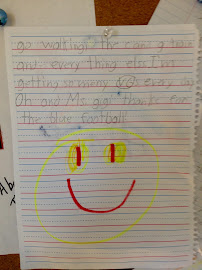 go walking, the cane g
and every thing else I'm
getting so meny every day
Oh and Ms. gigi thanks for
the blue football